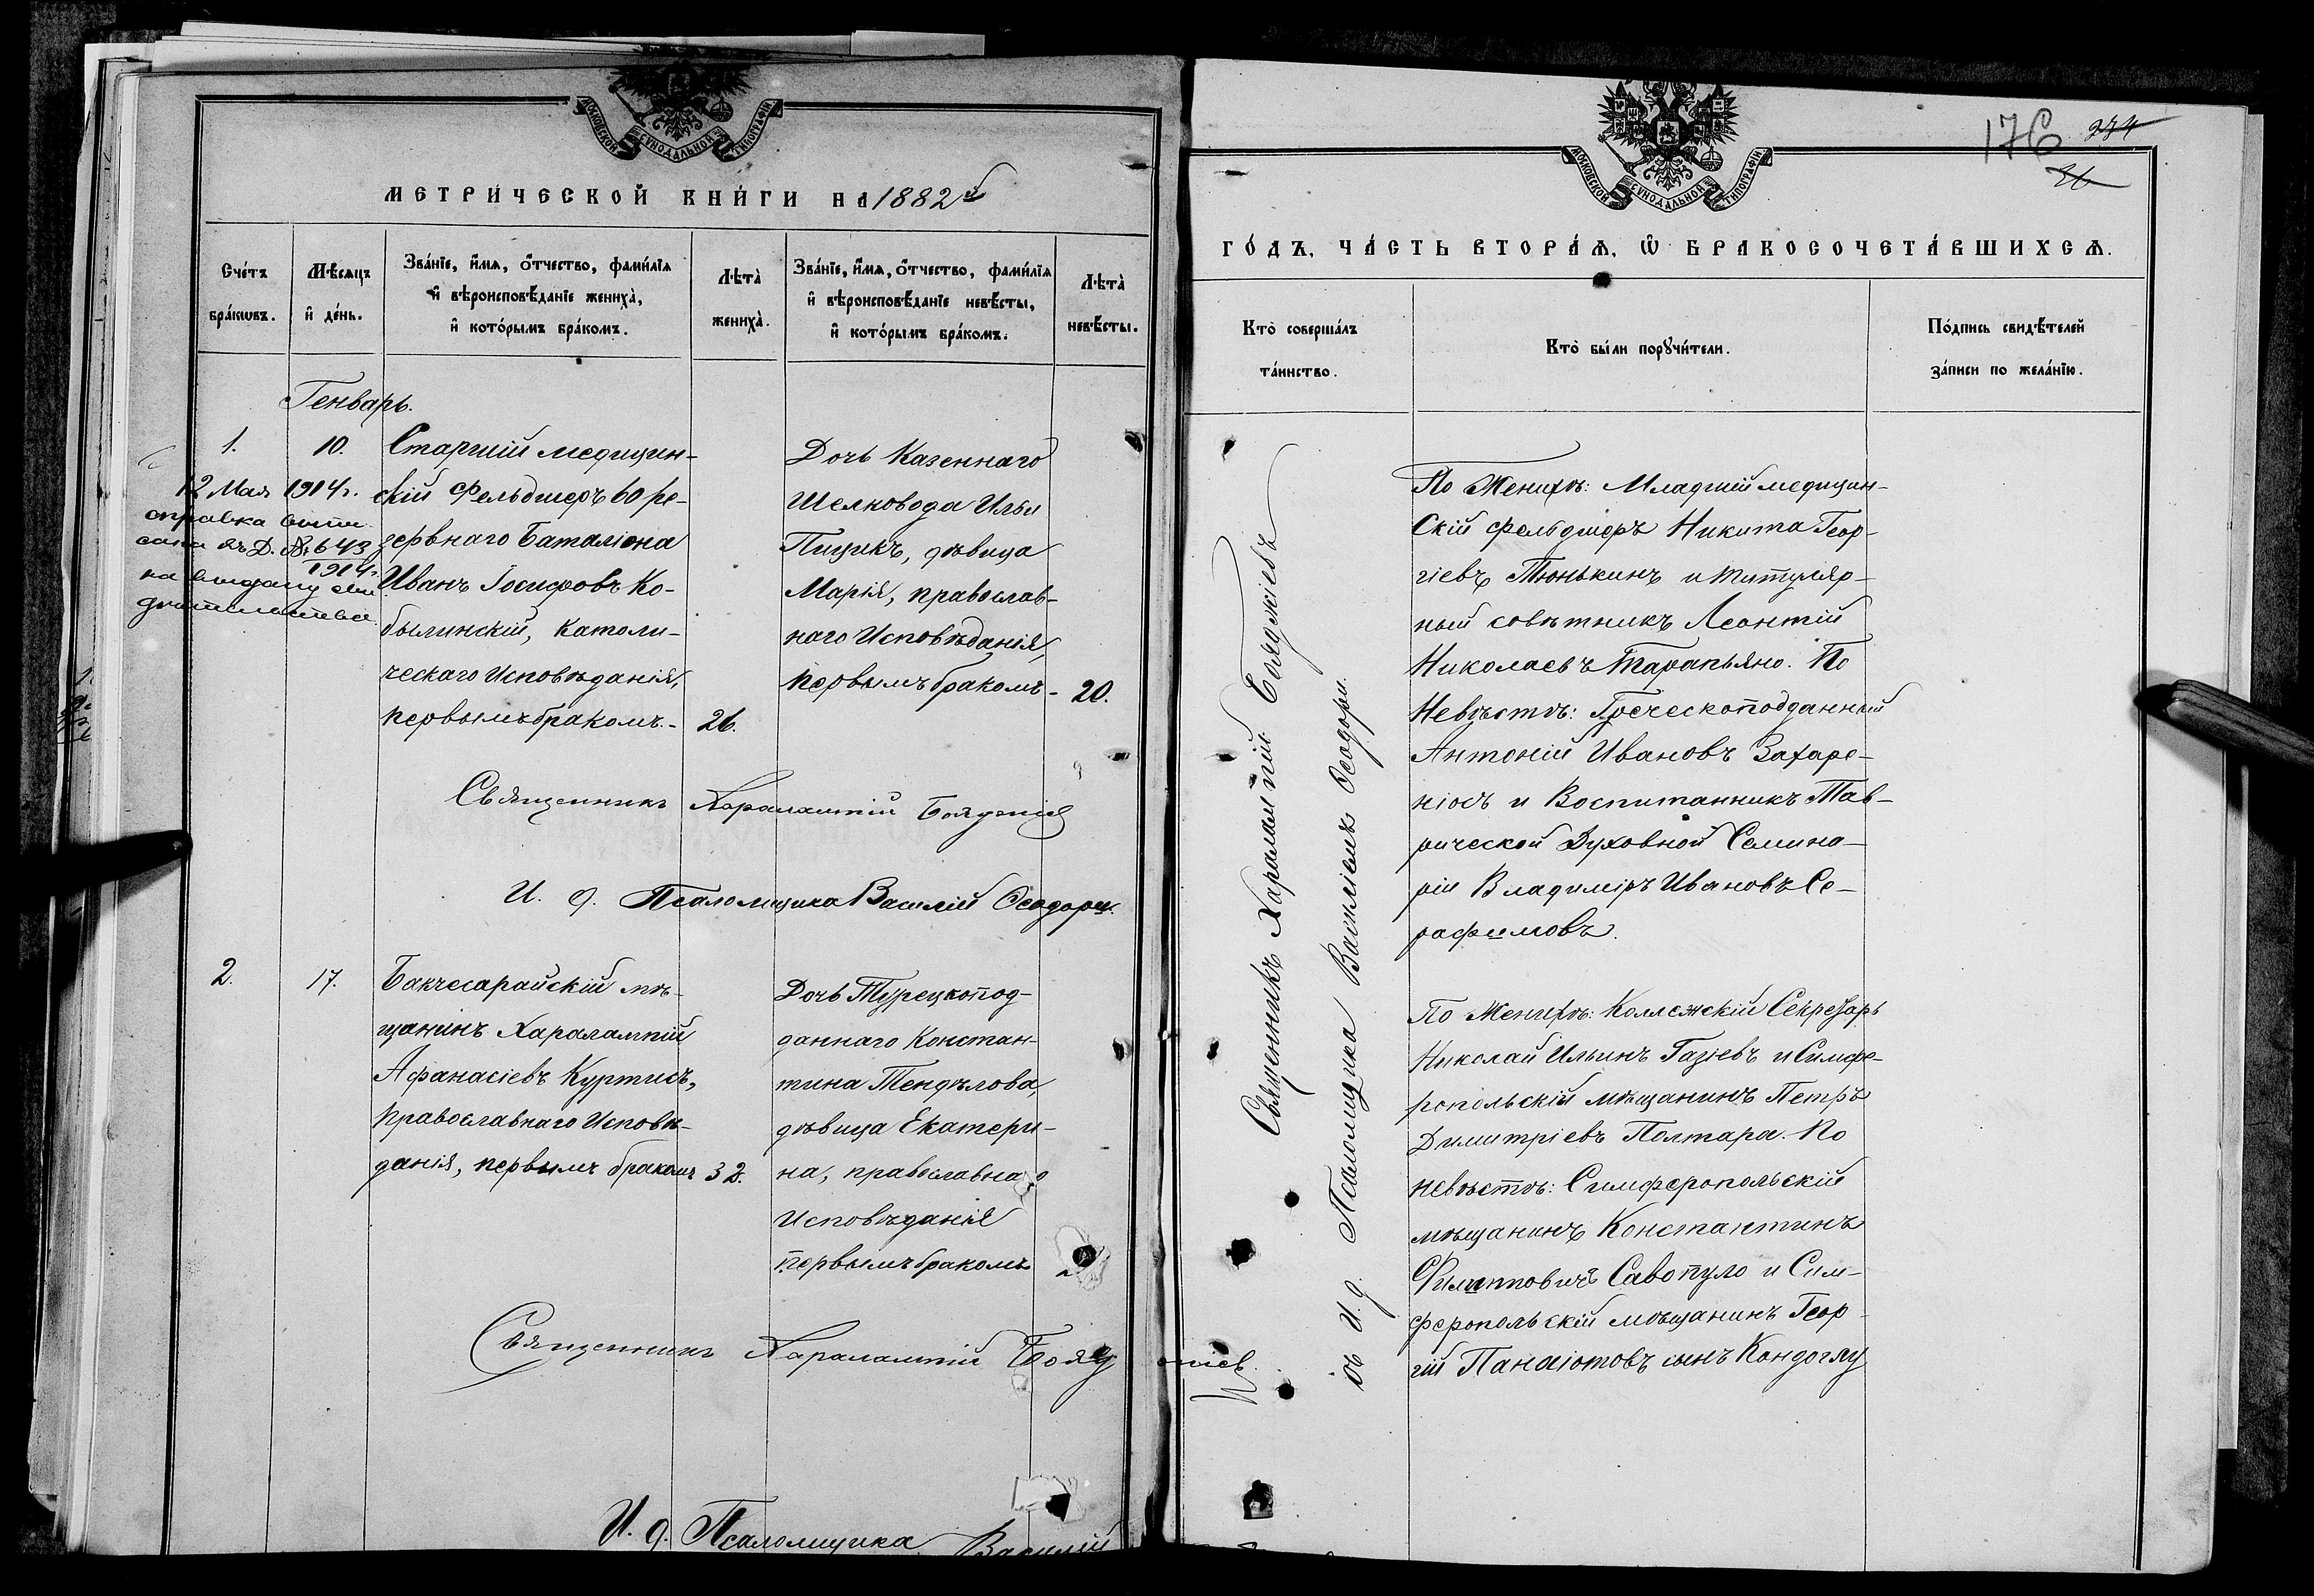 МОСКОВСКОЙ СѴНОДАЛЬНОЙ ТИПОГРАФІИ
МЕТРИЧЕСКОЙ КНИГИ НА 1882й
Счетъ браковъ.
Мѣсяцъ и день.
Званіе, имя, отчество, фамилія
и вѣроисповѣданіе жениха,
и которымъ бракомъ.
Лѣта
жениха.
Званіе, имя, отчество, фамилія
и вѣроисповѣданіе невѣсты,
и которымъ бракомъ.
Лѣта
невѣсты.
Генварь.
1.
10.
12 Мая 1914 г.
справка выпи-
сана въ Д. № 643
1914 г.
на выдачу сви
дѣтельства.
Старшій медицин-
скій Фельдшеръ 60 ре-
зервнаго Баталіона
Иванъ Іосифовъ Ко-
былинскій, католи-
ческаго Исповѣданія,
первымъ бракомъ.-
26.
Дочь Казеннаго
Шелковода Ильи
Пицикъ, дѣвица
Марія, православ-
наго Исповѣданія,
первымъ бракомъ-
20.
Священникъ Харалампій Бояджіев
И. д. Псаломщика Василій Ѳеодори.
2.
17.
Бакчесарайскій мѣ-
щанинъ Харалампій
Афанасіевъ Куртисъ,
Православнаго Исповѣ-
данія, первымъ бракомъ
32.
Дочь Турецкопод-
даннаго Констан-
тина Тендѣлова,
дѣвица Екатери-
на, православнаго
Исповѣданія
первымъ бракомъ
Священникъ Харалампій Бояджіев.
И. д. Псаломщика Василій
176 274
26
МОСКОВСКОЙ СѴНОДАЛЬНОЙ ТИПОГРАФІИ
ГОДЪ, ЧАСТЬ ВТОРАЯ, Ѡ БРАКОСОЧЕТАВШИХСЯ.
Кто совершалъ
таинство.
Кто были поручители.
Подпись свидѣтелей
записи по желанію.
Священникъ Харалампій Бояджіевъ
съ И. д. Псаломщика Василіемъ Ѳеодори.
По Женихѣ: Младшій медицин-
скій фельдшеръ Никита Геор-
гіевъ Тюнькинъ и титуляр-
ный совѣтникъ Леонтій
Николаевъ Тарапьяно. По
Невѣстѣ: Греческоподданный
Антоній Ивановъ Захаре-
ніосъ и Воспитанникъ Тав-
рической Духовной Семина-
ріи Владиміръ Ивановъ Се-
рафимовъ.
По Женихѣ: Коллежскій Секретарь
Николай Ильинъ Газіевъ и Симфе-
ропольскій мѣщанинъ Петръ
Димитріевъ Полтара. По
невѣстѣ: Симферопольскій
мѣщанинъ Константинъ
Филипповичъ Савопуло и Сим-
феропольскій мѣщанинъ Геор-
гій Панаіотовъ сынъ Кандоглу